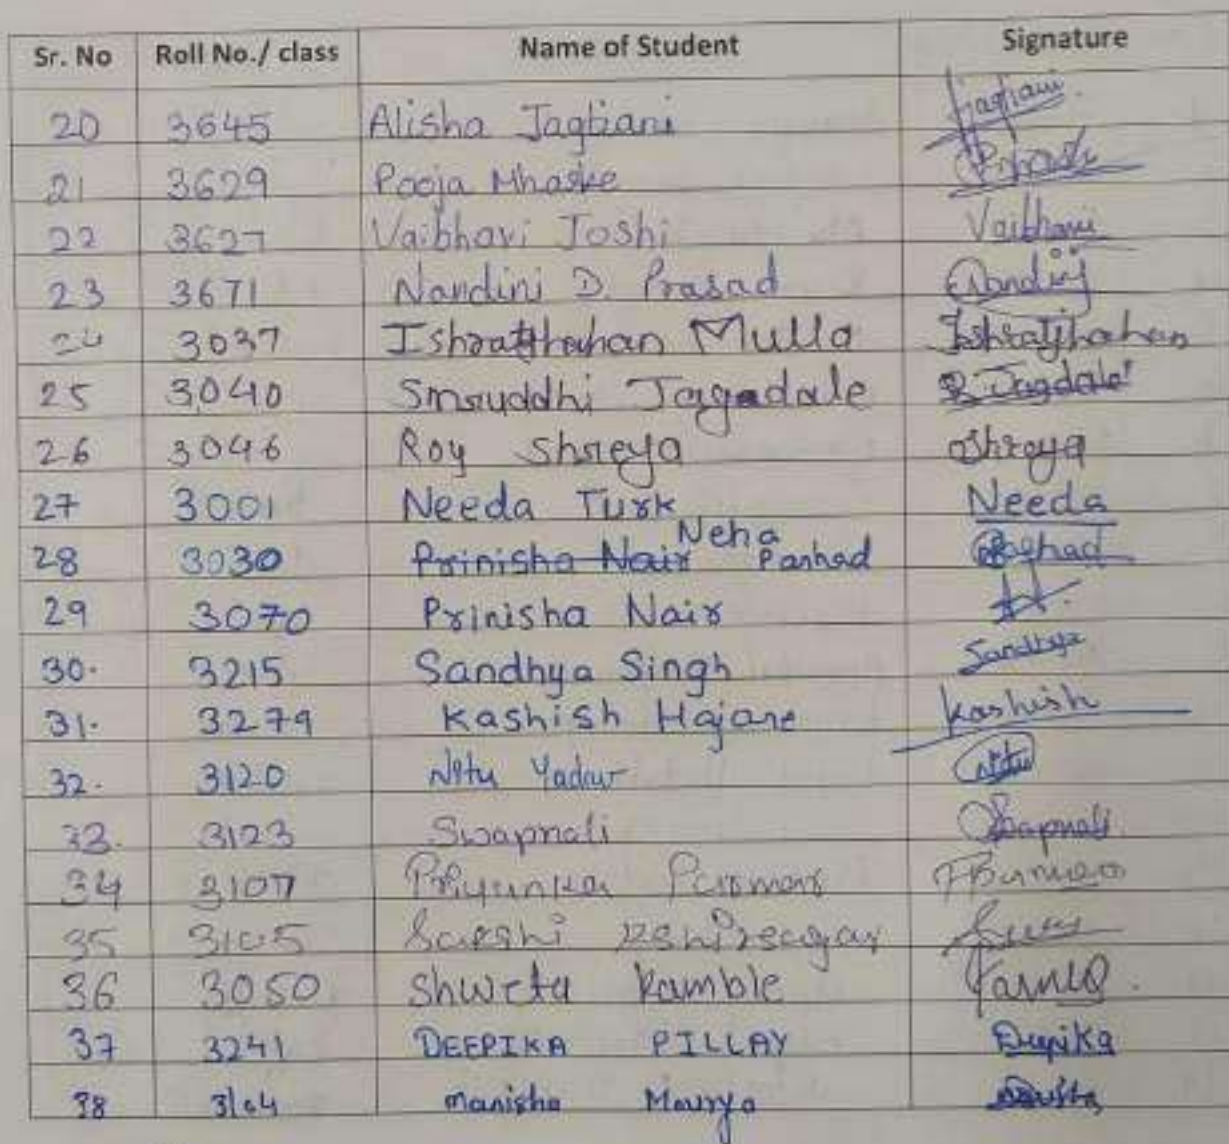 Sr. No Roll No./ class Name of Student Signature
20 3645 Alisha Jagbani
21 3629 Pooja Mhaske
22 3627 Vaibhavi Joshi Vaibhavi
23 3671 Nandini D. Prasad Nandini
24 3037 Ishratjhahan Mulla Ishratjhahan
25 3040 Smruddhi Jagadale S. Jagdale
26 3046 Roy Shreya Shreya
27 3001 Needa Turk Needa
28 3030 Prinisha Nair Neha Parhad
29 3070 Prinisha Nair
30. 3215 Sandhya Singh Sandhya
31. 3279 Kashish Hajare Kashish
32. 3120 Nitu Yadav Nitu
33. 3123 Swapnali Swapnali
34 3107 Priyanka Parmar
35 3105 Sakshi Kshirsagar
36 3050 Shweta Kamble
37 3241 DEEPIKA PILLAY Deepika
38 3104 Manisha Mourya